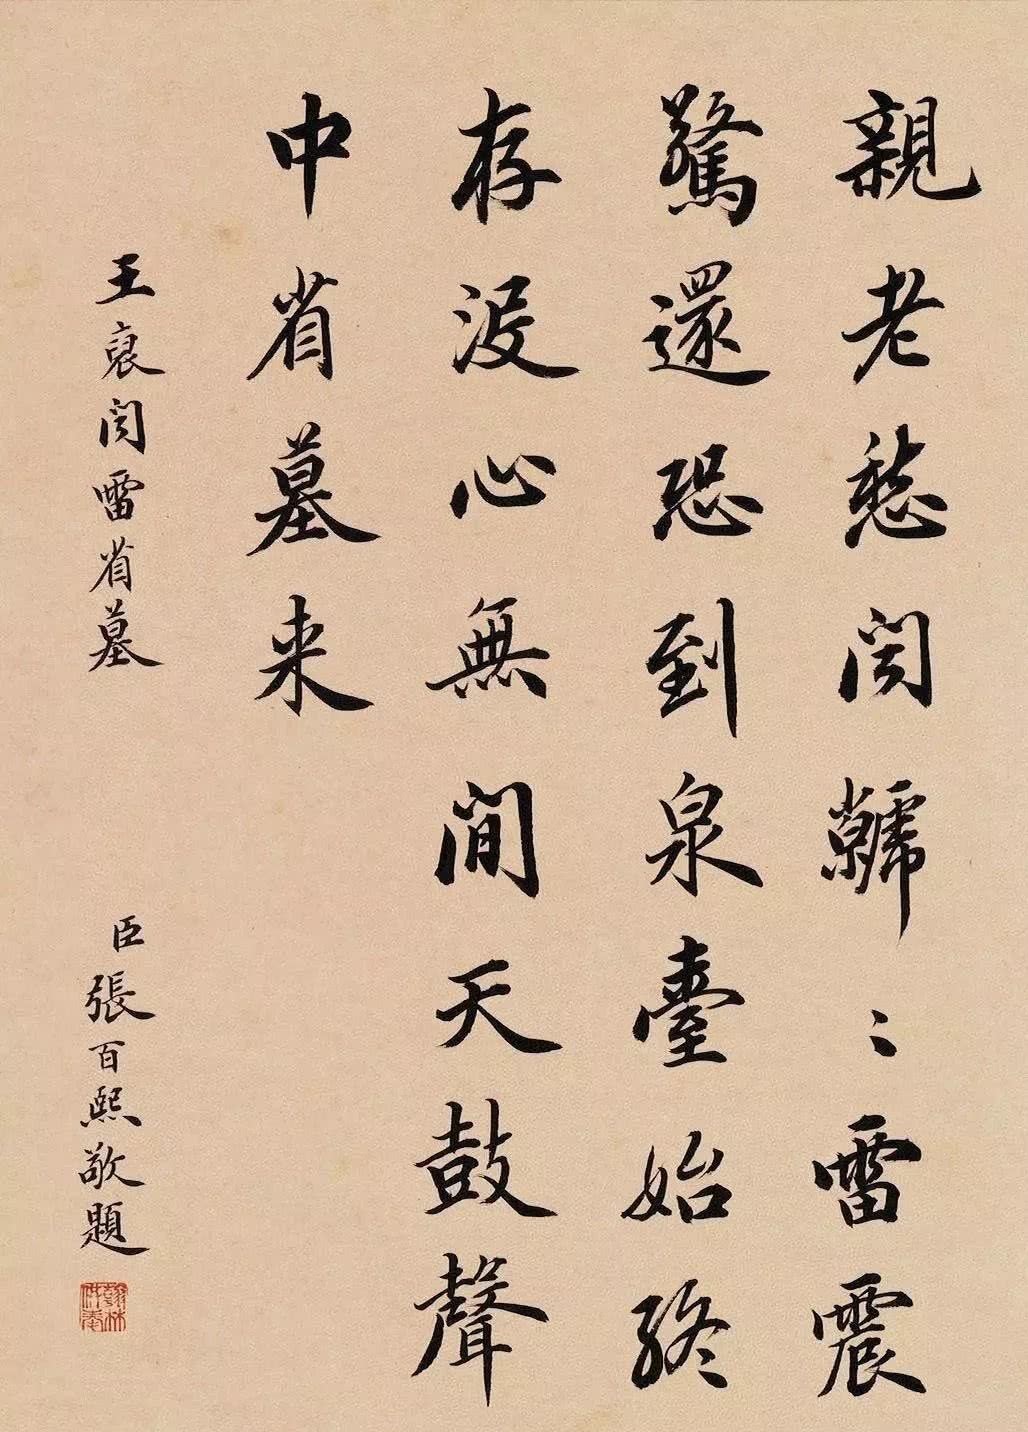 親老愁聞虩〻雷震
驚還恐到泉臺始終
存沒心無間天鼓聲
中省墓来
王裒聞雷省墓
臣張百熙敬題
翰林供奉